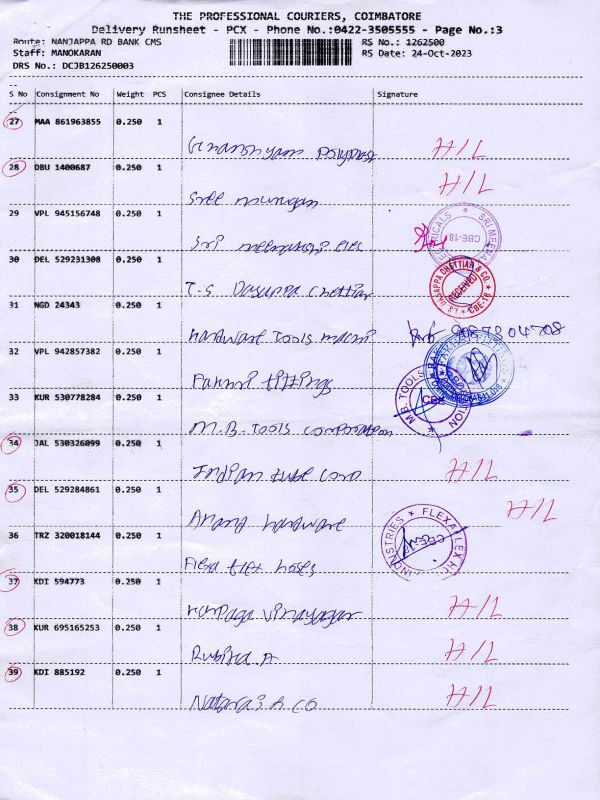 THE PROFESSIONAL COURIERS, COIMBATORE
Delivery Runsheet - PCX - Phone No.:0422-3505555 - Page No.:3
Route: NANJAPPA RD BANK CMS RS No.: 1262500
Staff: MANOKARAN RS Date: 24-Oct-2023
DRS No.: DCJB126250003
S No Consignment No Weight PCS Consignee Details Signature
27 MAA 861963855 0.250 1
H/L
28 DBU 1400687 0.250 1
Sree murugan H/L
29 VPL 945156748 0.250 1
Sri meenatchi elec
SRI MEE
CBE-18
30 DEL 529231308 0.250 1
T.S Dasappa chettiar
DASAPPA CHETTIAR & CO.
RECEIVED
CBE-18
31 NGD 24343 0.250 1
hardware Tools
32 VPL 942857382 0.250 1
fittings
33 KUR 530778284 0.250 1
M.B. Tools corporation
M.B. TOOLS
34 JAL 530326099 0.250 1
Indian tube corp H/L
35 DEL 529284861 0.250 1
Anand hardware H/L
36 TRZ 320018144 0.250 1
Flexa flex hoses
INDUSTRIES * FLEXAFLEX
37 KDI 594773 0.250 1
Karpaga vinayagar H/L
38 KUR 695165253 0.250 1
H/L
39 KDI 885192 0.250 1
Nataraj & CO H/L